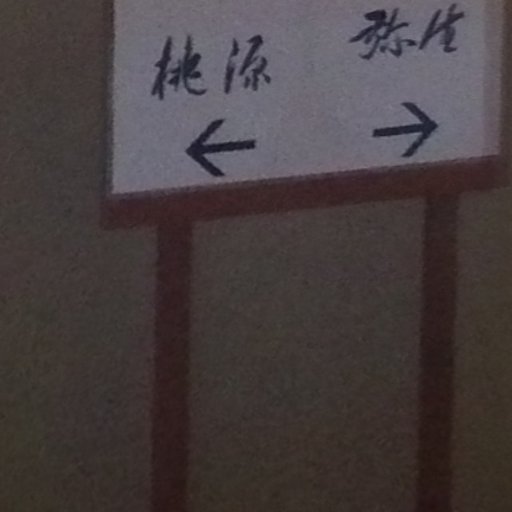 桃源 弥生
← →